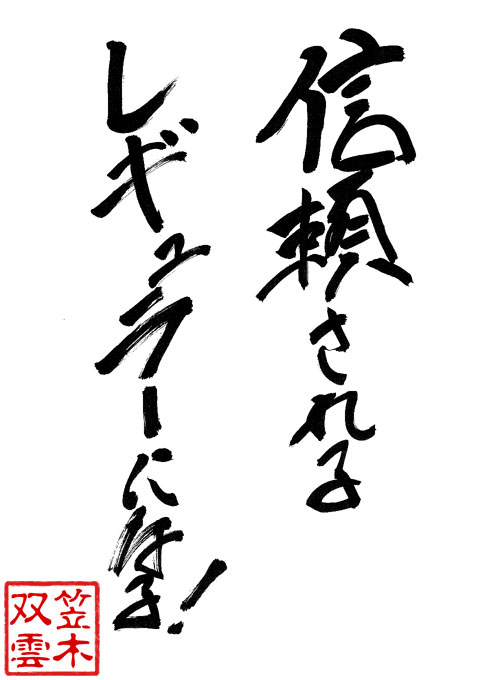 信頼される
レギュラーになる!
笠木
双雲